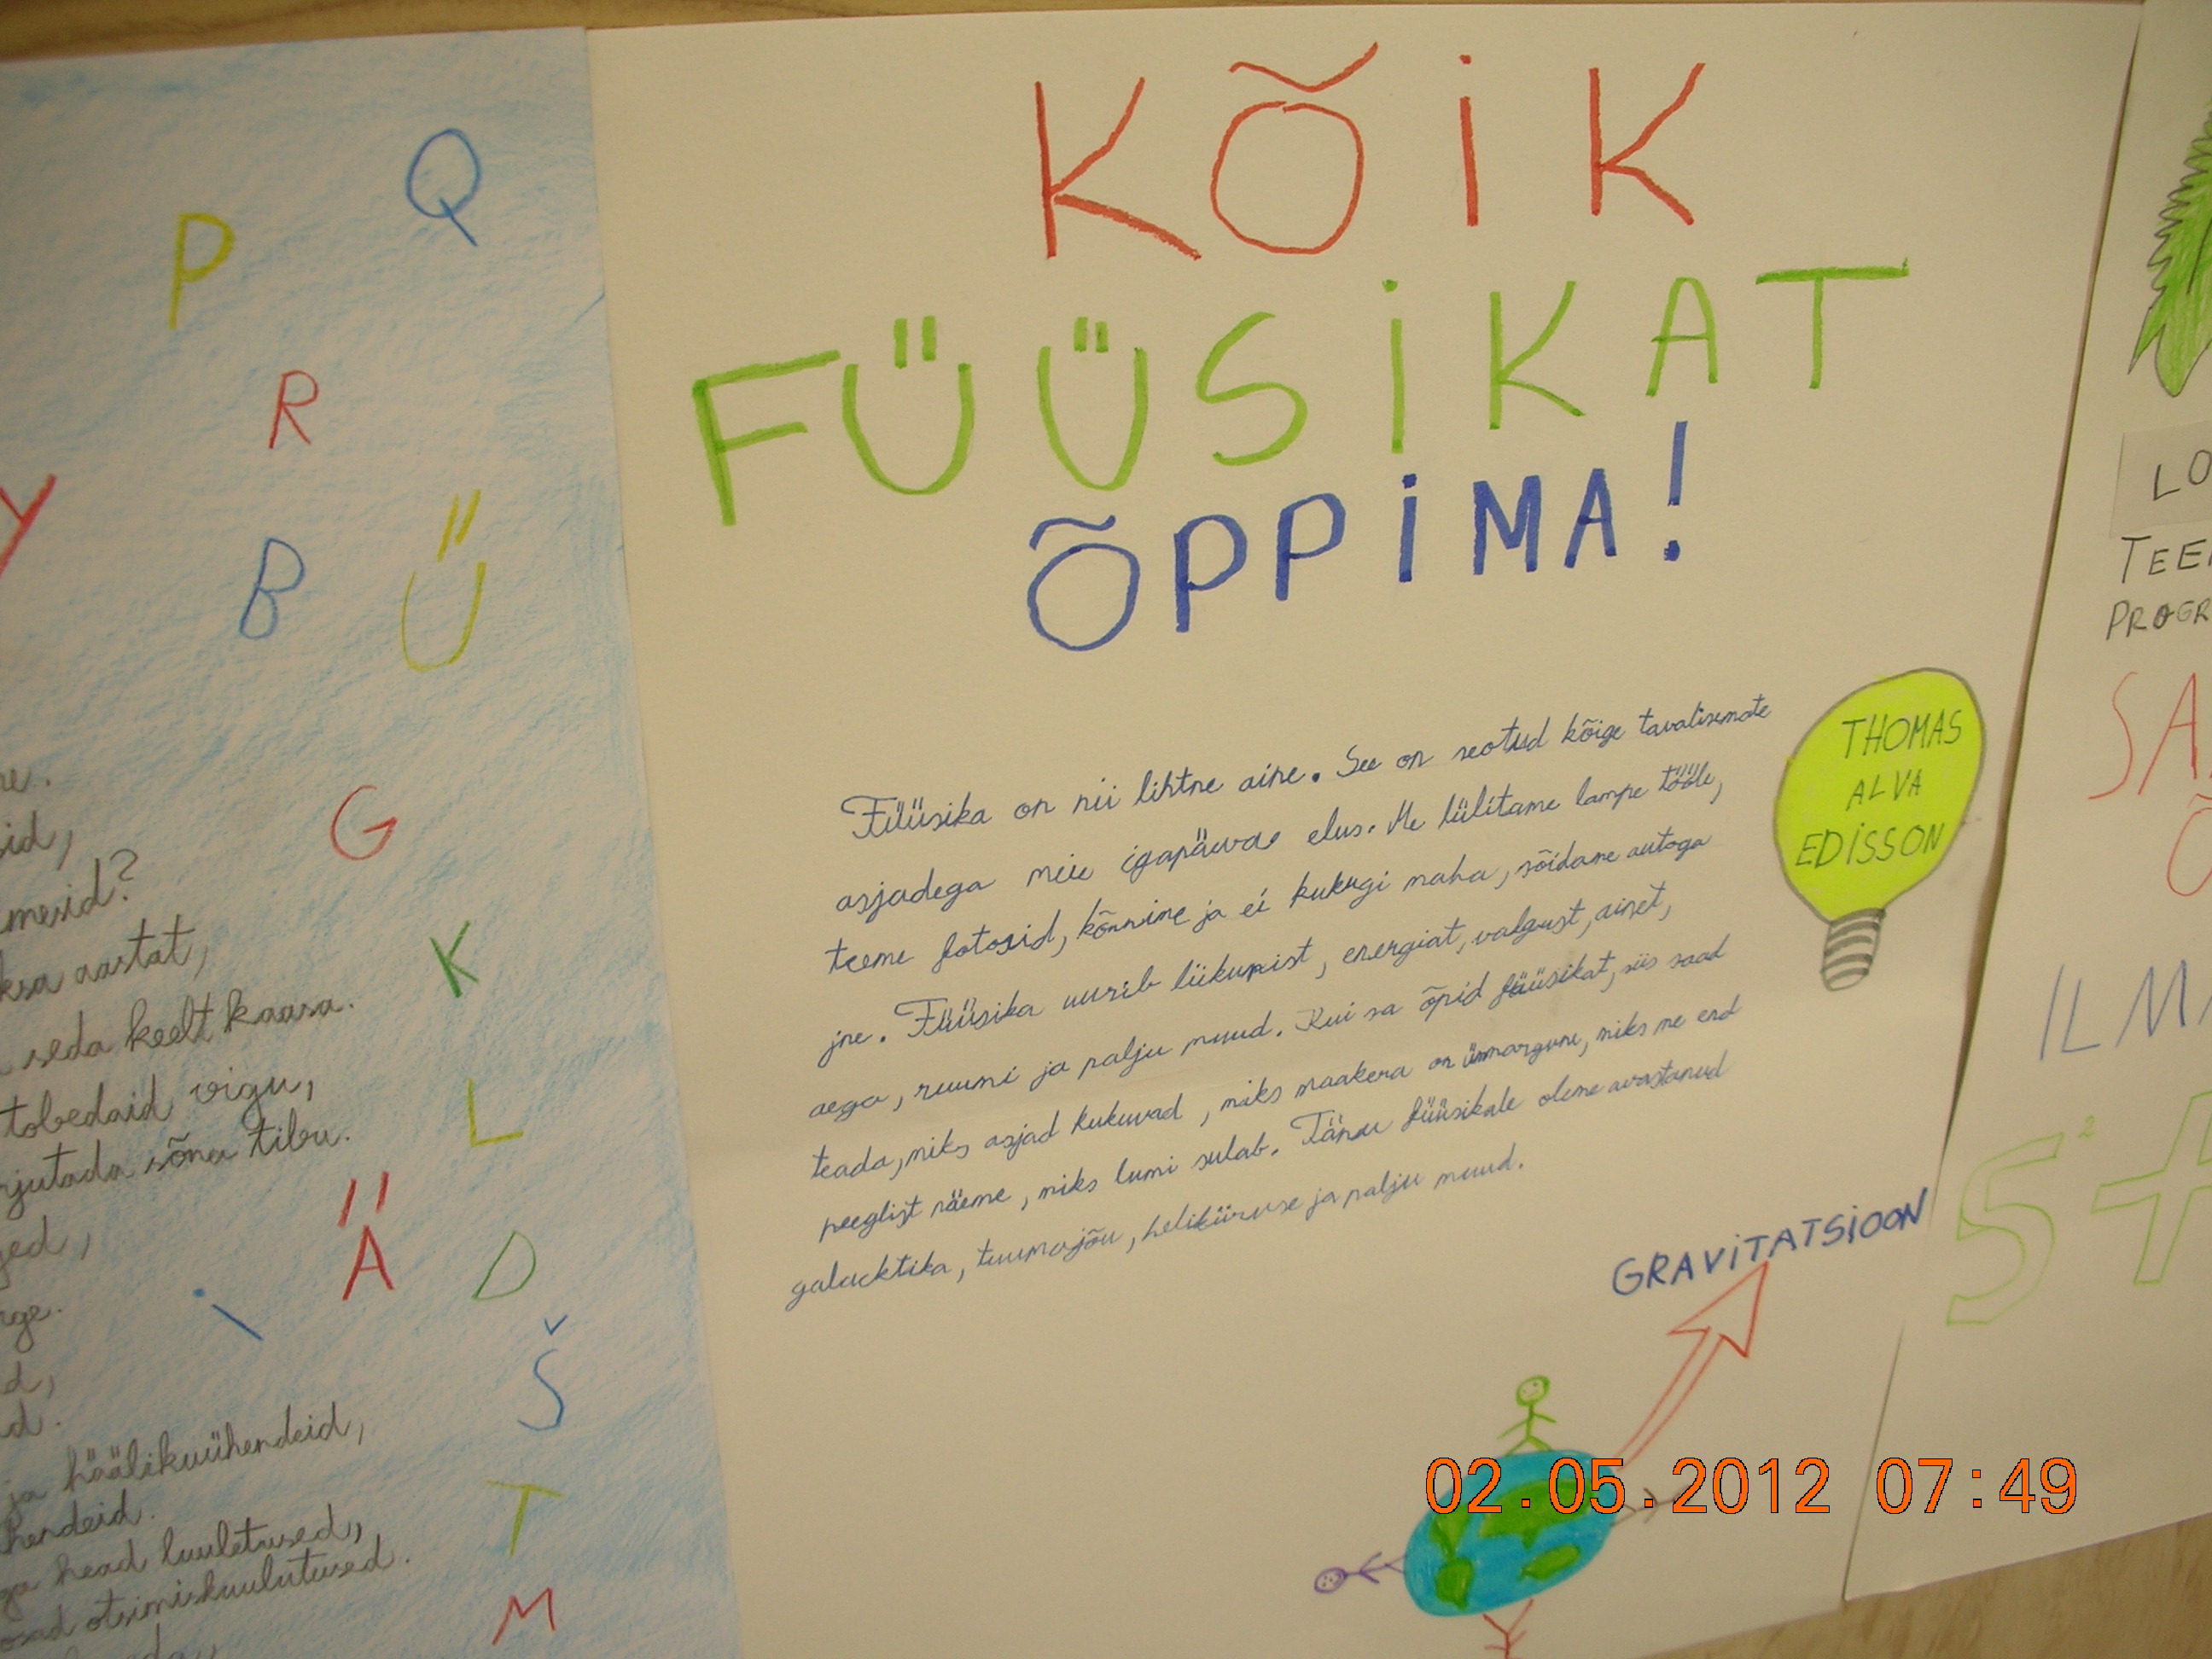 P
Q
R
Y
B
Ü
G
K
L
Ä
D
I
Š
T
M
me.
sid,
mesid?
ksa aastat,
seda keelt kaasa.
tobedaid vigu,
rjutada sõna tibu.
ged,
rge.
d,
d.
ja häälikuühendeid,
hendeid.
ga head luuletused,
osad otsimiskuulutused.
KÕIK
FÜÜSIKAT
ÕPPIMA!
Füüsika on nii lihtne aine. See on seotud kõige tavalisemate
asjadega meie igapäevas elus. Me lülitame lampe tööle,
teeme fotosid, kõnnime ja ei kukugi maha, sõidame autoga
jne. Füüsika uurib liikumist, energiat, valgust, ainet,
aega, ruumi ja palju muud. Kui sa õpid füüsikat, siis saad
teada, miks asjad kukuvad, miks maakera on ümmargune, miks me end
peeglist näeme, miks lumi sulab. Tänu füüsikale oleme avastanud
galacktika, tuumajõu, helikiiruse ja palju muud.
THOMAS
ALVA
EDISSON
GRAVITATSIOON
LO
TEE
PROGR
SA
Õ
ILMA
S² +
02.05.2012 07:49